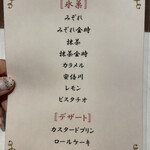 〖氷菓〗
みぞれ
みぞれ金時
抹茶
抹茶金時
カラメル
安倍川
レモン
ピスタチオ
〖デザート〗
カスタードプリン
ロールケーキ